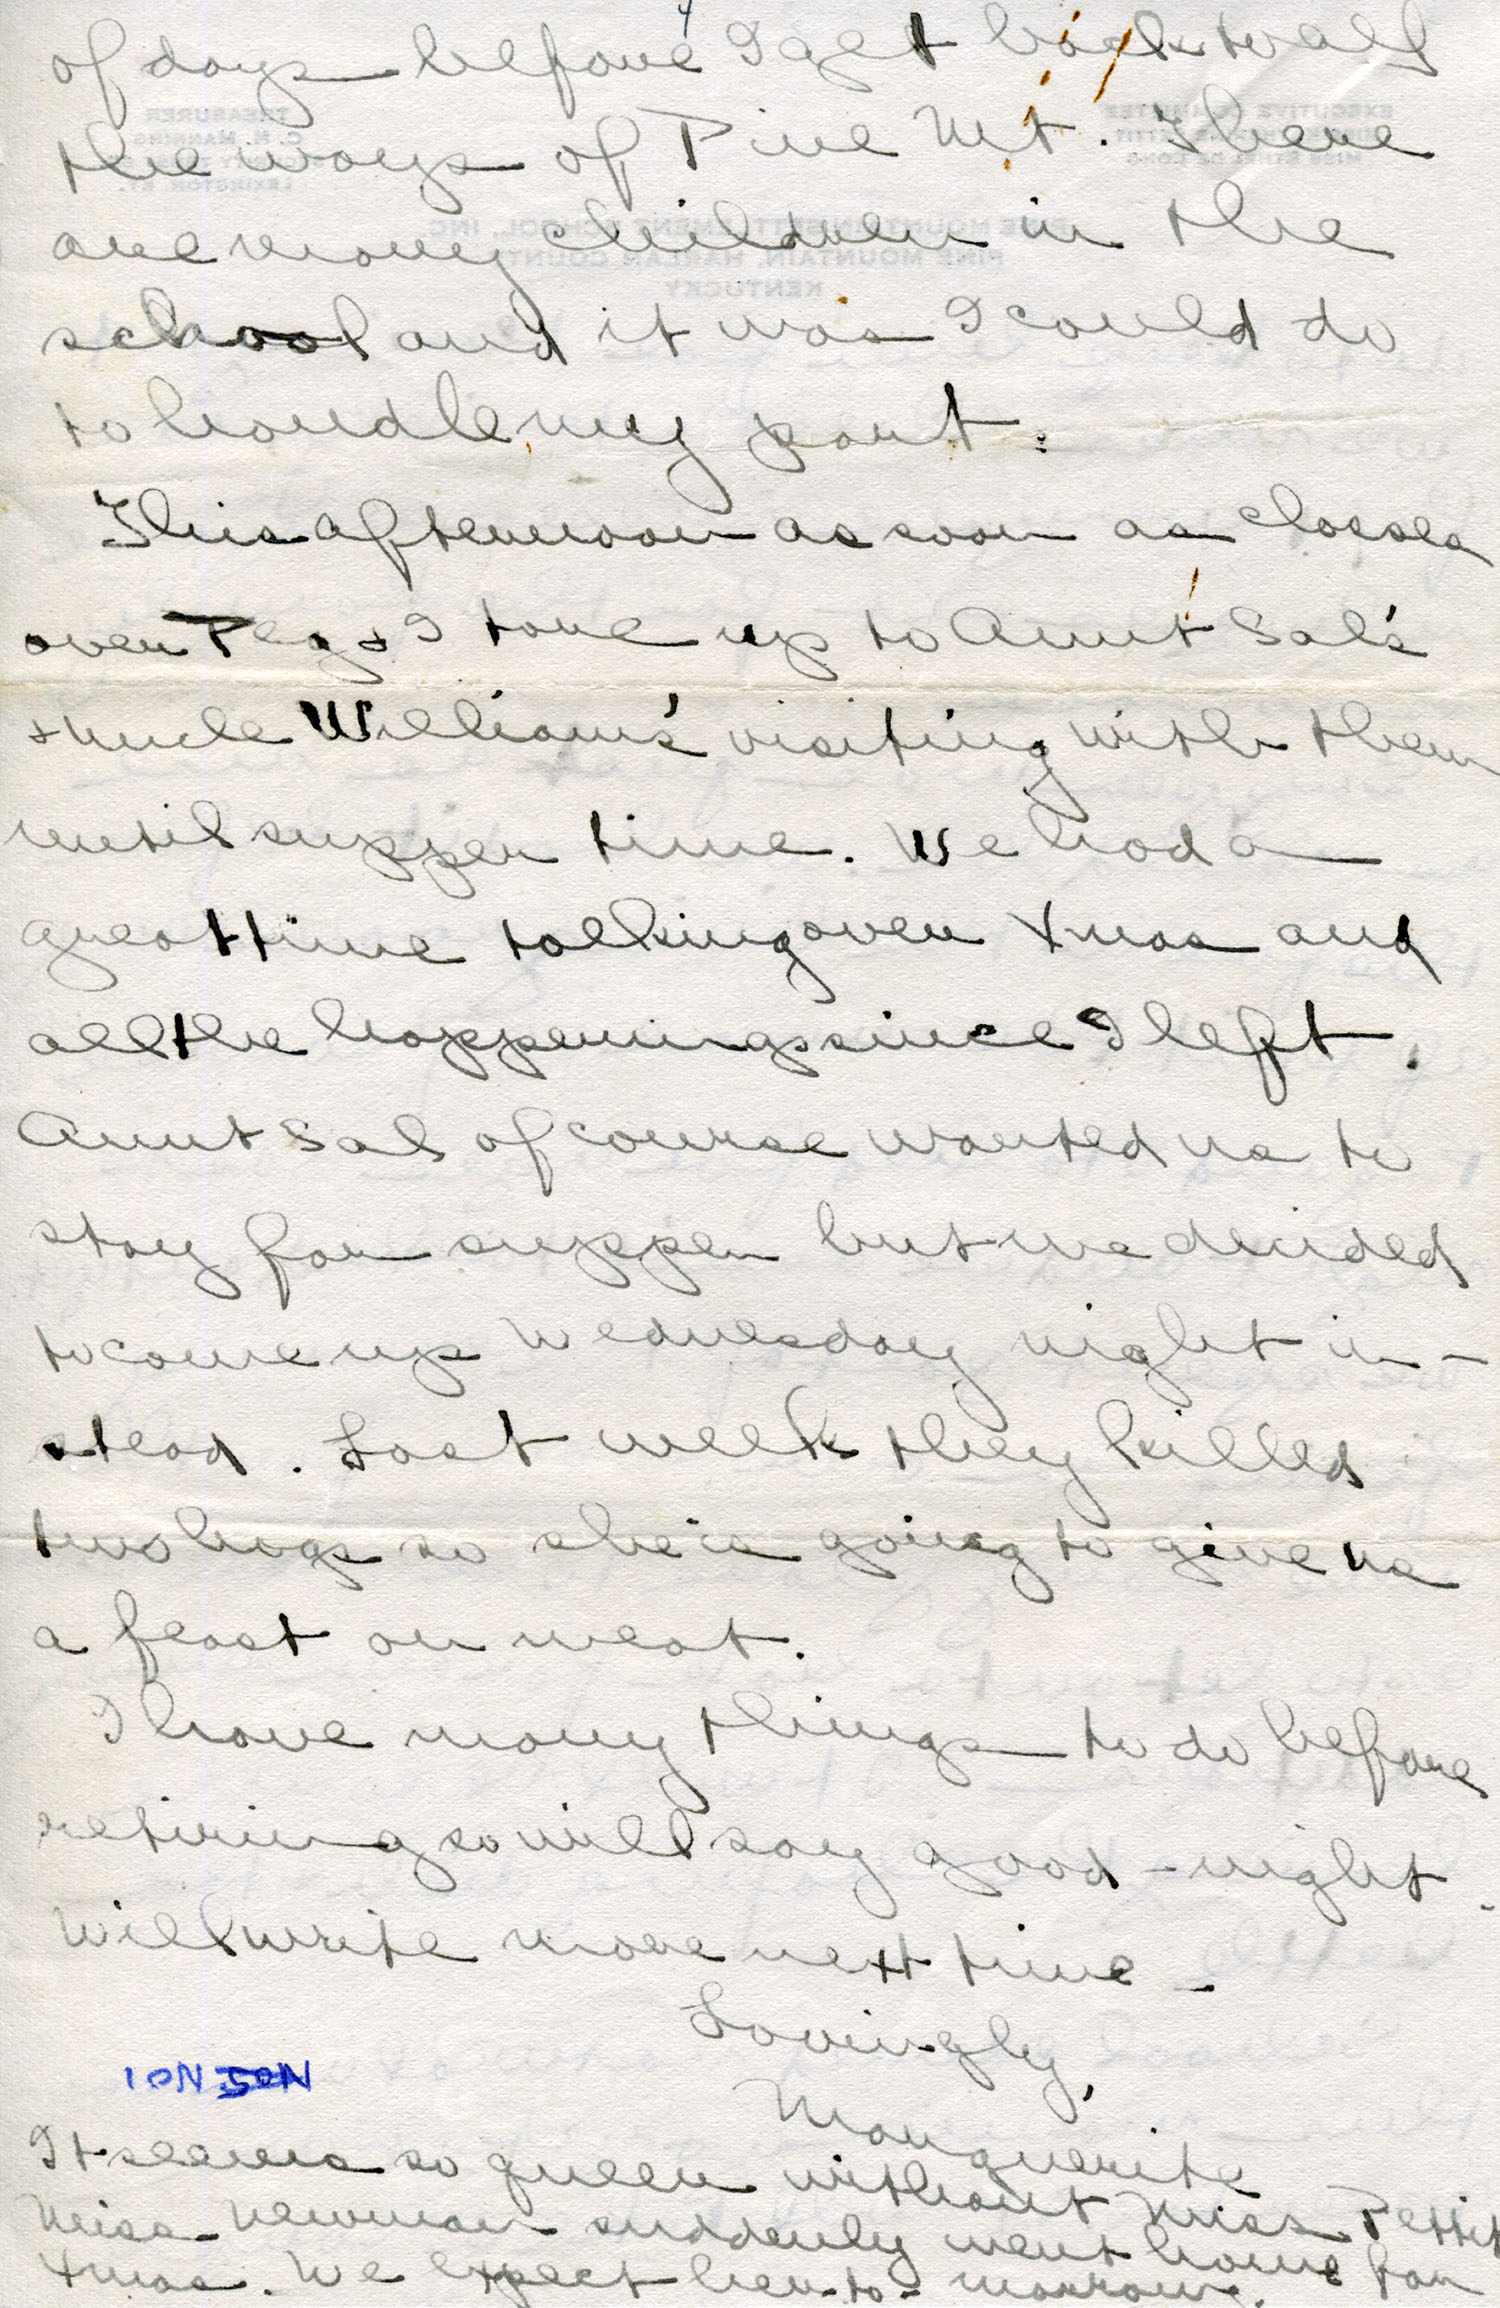 4
of days before I get back to all
the ways of Pine Mt. There
are many children in the
school and it was I could do
to handle my part.
This afternoon as soon as classes
over Peg & I tore up to Aunt Sal's
& Uncle William's visiting with them
until supper time. We had a
great time talking over Xmas and
all the happenings since I left.
Aunt Sal of course wanted us to
stay for supper but we decided
to come up Wednesday night in-
stead. Last week they killed
two hogs so she is going to give us
a feast on meat.
I have many things to do before
retiring so will say good-night.
Will write more next time -
Lovingly,
Marguerite
It seems so queer without Miss Pettit
Miss Newman suddenly went home for
Xmas. We expect her to-morrow.
EXECUTIVE COMMITTEE
MISS ETHEL DE LONG
TREASURER
C. N. MANNING
LEXINGTON, KY.
PINE MOUNTAIN SETTLEMENT SCHOOL, INC.
PINE MOUNTAIN, HARLAN COUNTY
KENTUCKY